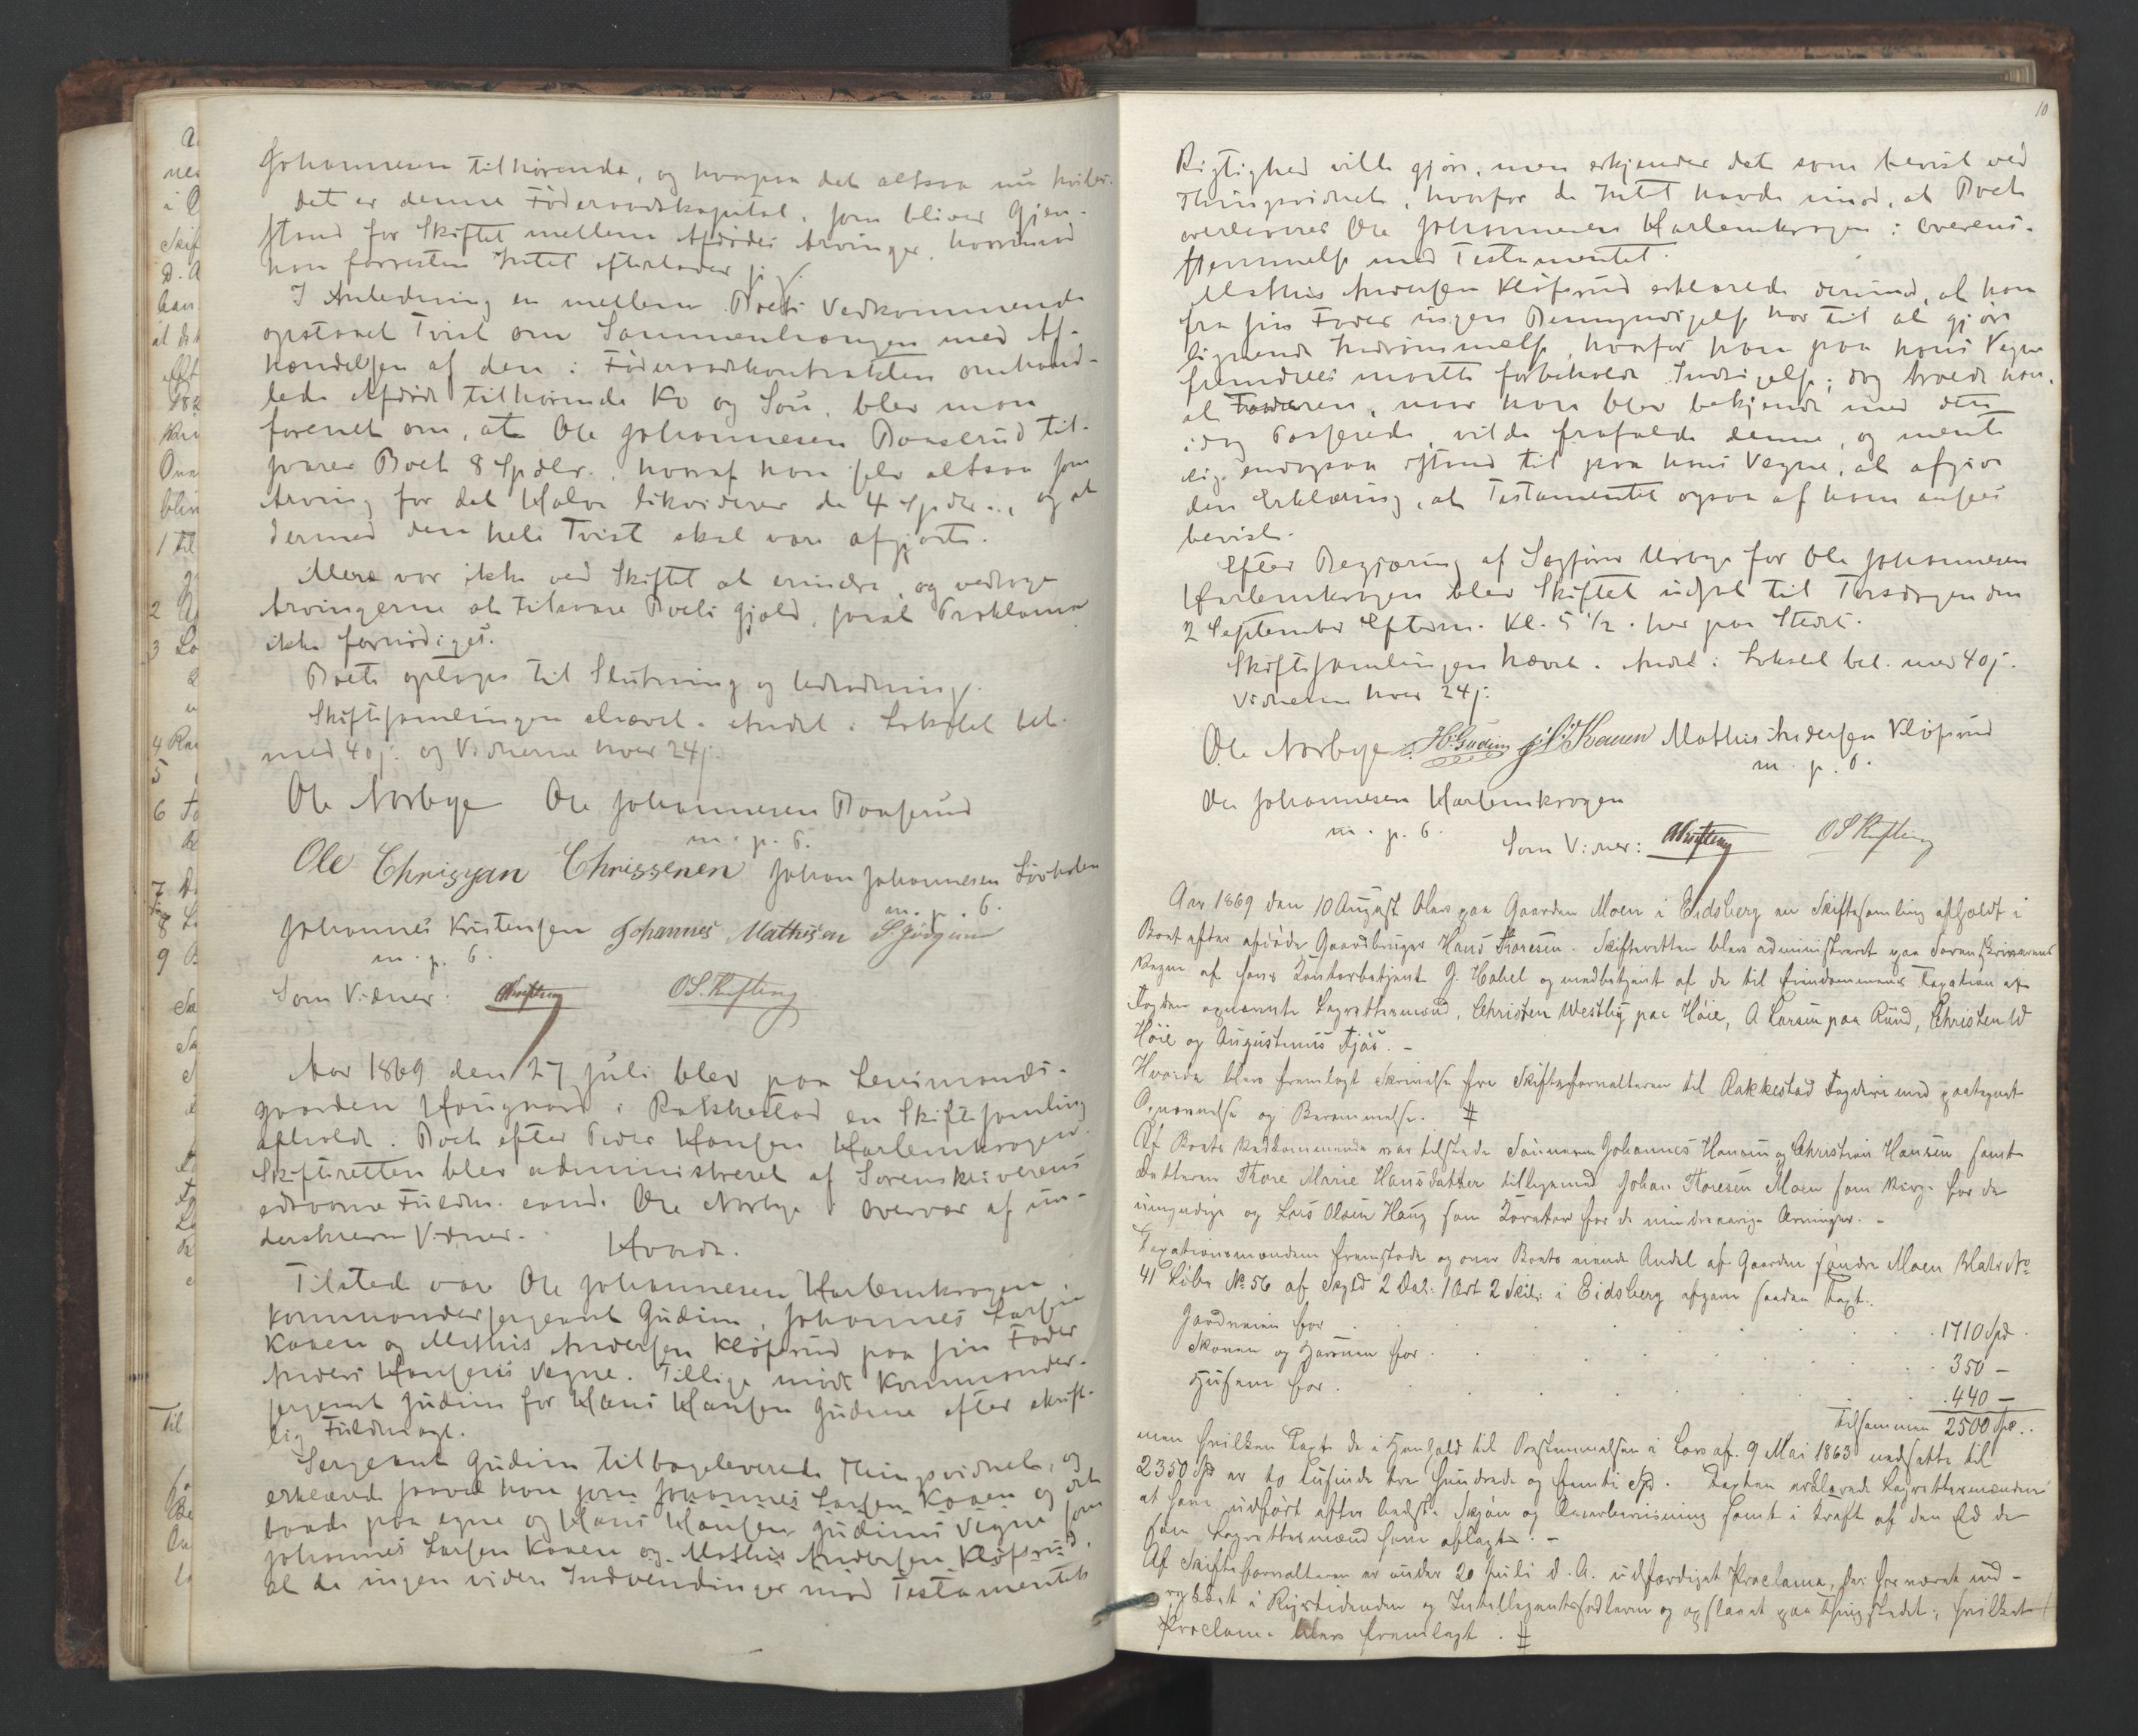 Johannesen tilhørende, og hvorpaa det altsaa nu hviler.
Det er denne Föderaadskapital, som bliver Gjen-
stand for Skiftet mellem Afdødes Arvinger, hvorimod
han forresten Intet efterlader sig.
I Anledning en mellem Boets Vedkommende
opstaaet Tvist om Sammenhængen med Af-
hændelsen af den i Föderaadskontrakten omhand-
lede Afdøde tilhørende Ko og Sou, blev man
forenet om, at Ole Johannesen Baaserud til-
svarer Boet 8 Spdlr., hvoraf han selv altsaa som
Arving for det Halve likviderer de 4 Spdlr., og at
dermed den hele Tvist skal være afgjort.
Mere var ikke ved Skiftet at erindre, og vedtoge
Arvingerne at tilsvare Boets Gjæld, saa at Proklama
ikke fornødiges.
Boet optoges til Slutning og Udlodning.
Skiftesamlingen hævet. Andet: Lokalet bet.
med 40 s. og Vidnerne hver 24 s.
Ole Norbye Ole Johannesen Baaserud
m. p. 6.
Ole Chrisyan Chrissenen Johan Johannesen
m. p. 6.
Johannes Kristensen Johannes Mathisen
m. p. 6.
Som Vidner: O S. Kifling
Aar 1869 den 27 Juli blev paa Lensmands-
gaarden Haugnæs i Rakkestad en Skiftesamling
afholdt i Boet efter Peder Hansen Harlemkrogen.
Skifteretten blev administreret af Sorenskriverens
edsvorne Fuldm. cand. Ole Norbye i Overvær af un-
derskrevne Vidner.
Hvorda.
Tilstede var Ole Johannesen Harlemkrogen,
Kommandersergeant Gudim, Johannes Larsen
Kaaen og Mathis Andersen Kløfsrud paa sin Fader
Anders Hansens Vegne. Tillige mødte Kommander-
sergeant Gudim for Hans Hansen Gudim efter skrift-
lig Fuldmagt.
Sergeant Gudim tilbageleverede Thingsvidnet, og
erklærede saavel han som Johannes Larsen Kaaen og det
baade paa egne og Hans Hansen Gudims Vegne som
Johannes Larsen Kaaen og Mathis Andersen Kløfsrud,
at de ingen videre Indvendinger mod Testamentets
10
Rigtighed ville gjøre, men erkjender det som bevist ved
Thingsvidnet, hvorfor de Intet havde imod, at Boet
overleveres Ole Johannesen Harlemkrogen i Overens-
stemmelse med Testamentet.
Mathis Andersen Kløfsrud erklærede derimod, at han
fra sin Fader ingen Bemyndigelse har til at gjøre
lignende Indrømmelse, hvorfor han paa hans Vegne
fremdeles maatte forbeholde Indsigelse; dog troede han,
at Faderen, naar han blev bekjendt med det
idag Passerede, vilde frafalde denne, og mente
sig endogsaa istand til paa hans Vegne, at afgive
den Erklæring, at Testamentet ogsaa af ham ansees
bevist.
Efter Begjæring af Sagfører Urbye for Ole Johannesen
Harlemkrogen blev Skiftet udsat til Torsdagen den
2 September Efterm. Kl. 5 1/2 her paa Stedet.
Skiftesamlingen hævet. Andet: Lokalet bet. med 40 s.
Vidnerne hver 24 s.
Ole Norbye H. Gudim J. L. Kaaen Mathis Andersen Kløfsrud
m. p. 6.
Ole Johannesen Harlemkrogen
m. p. 6.
Som Vidner: O S Kifling
Aar 1869 den 10 August blev paa Gaarden Moen i Eidsberg en Skiftesamling afholdt i
Boet efter afdøde Gaardbruger Hans Thoresen. Skifteretten blev administreret paa Sorenskriverens
Vegne af hans Kontorbetjent J. Habel og medbetjent af de til Eiendommens Taxation af
Fogden opnævnte Lagrettesmænd, Christen Westby paa Høie, A Larsen paa Rud, Christen W
Høie og Augustinus Fjøs. –
Hvorda blev fremlagt Skrivelse fra Skifteforvalteren til Rakkestad Fogderi med paategnet
Opnævnelse og Berammelse. #
Af Boets Vedkommende var tilstede Sønnerne Johannes Hansen og Christian Hansen samt
Datteren Thore Marie Hansdatter tilligemed Johan Thoresen Moen som Værge for de
umyndige og Lars Olsen Haug som Kurator for de mindreaarige Arvinger. –
Taxationsmændene fremstode og over Boets eiende Andel af Gaarden søndre Moen Matr. No
41 Løbe No 56 af Skyld 2 Dal. 1 Ort 2 Skil. i Eidsberg afgave saadan Taxt:
Jordveien for . . . 1710 Spd.
Skoven og Havnen for . . . 350 –
Husene for . . . 440 –
Tilsammen 2500 Spd.
men hvilken Taxt de i Henhold til Bestemmelsen i Lov af 9 Mai 1863 nedsatte til
2350 Spd er to tusinde tre hundrede og femti Spd. Taxten erklærede Lagrettesmændene
at have udført efter bedste Skjøn og Overbevisning samt i Kraft af den Ed de
som Lagrettesmænd have aflagt. –
Af Skifteforvalteren er under 20 Juli d. A. udfærdiget Proclama, der har været ind-
rykket i Rigstidenden og Intelligentssedlerne og opslaaet paa Thingstedet, hvilket
Proclama blev fremlagt. #